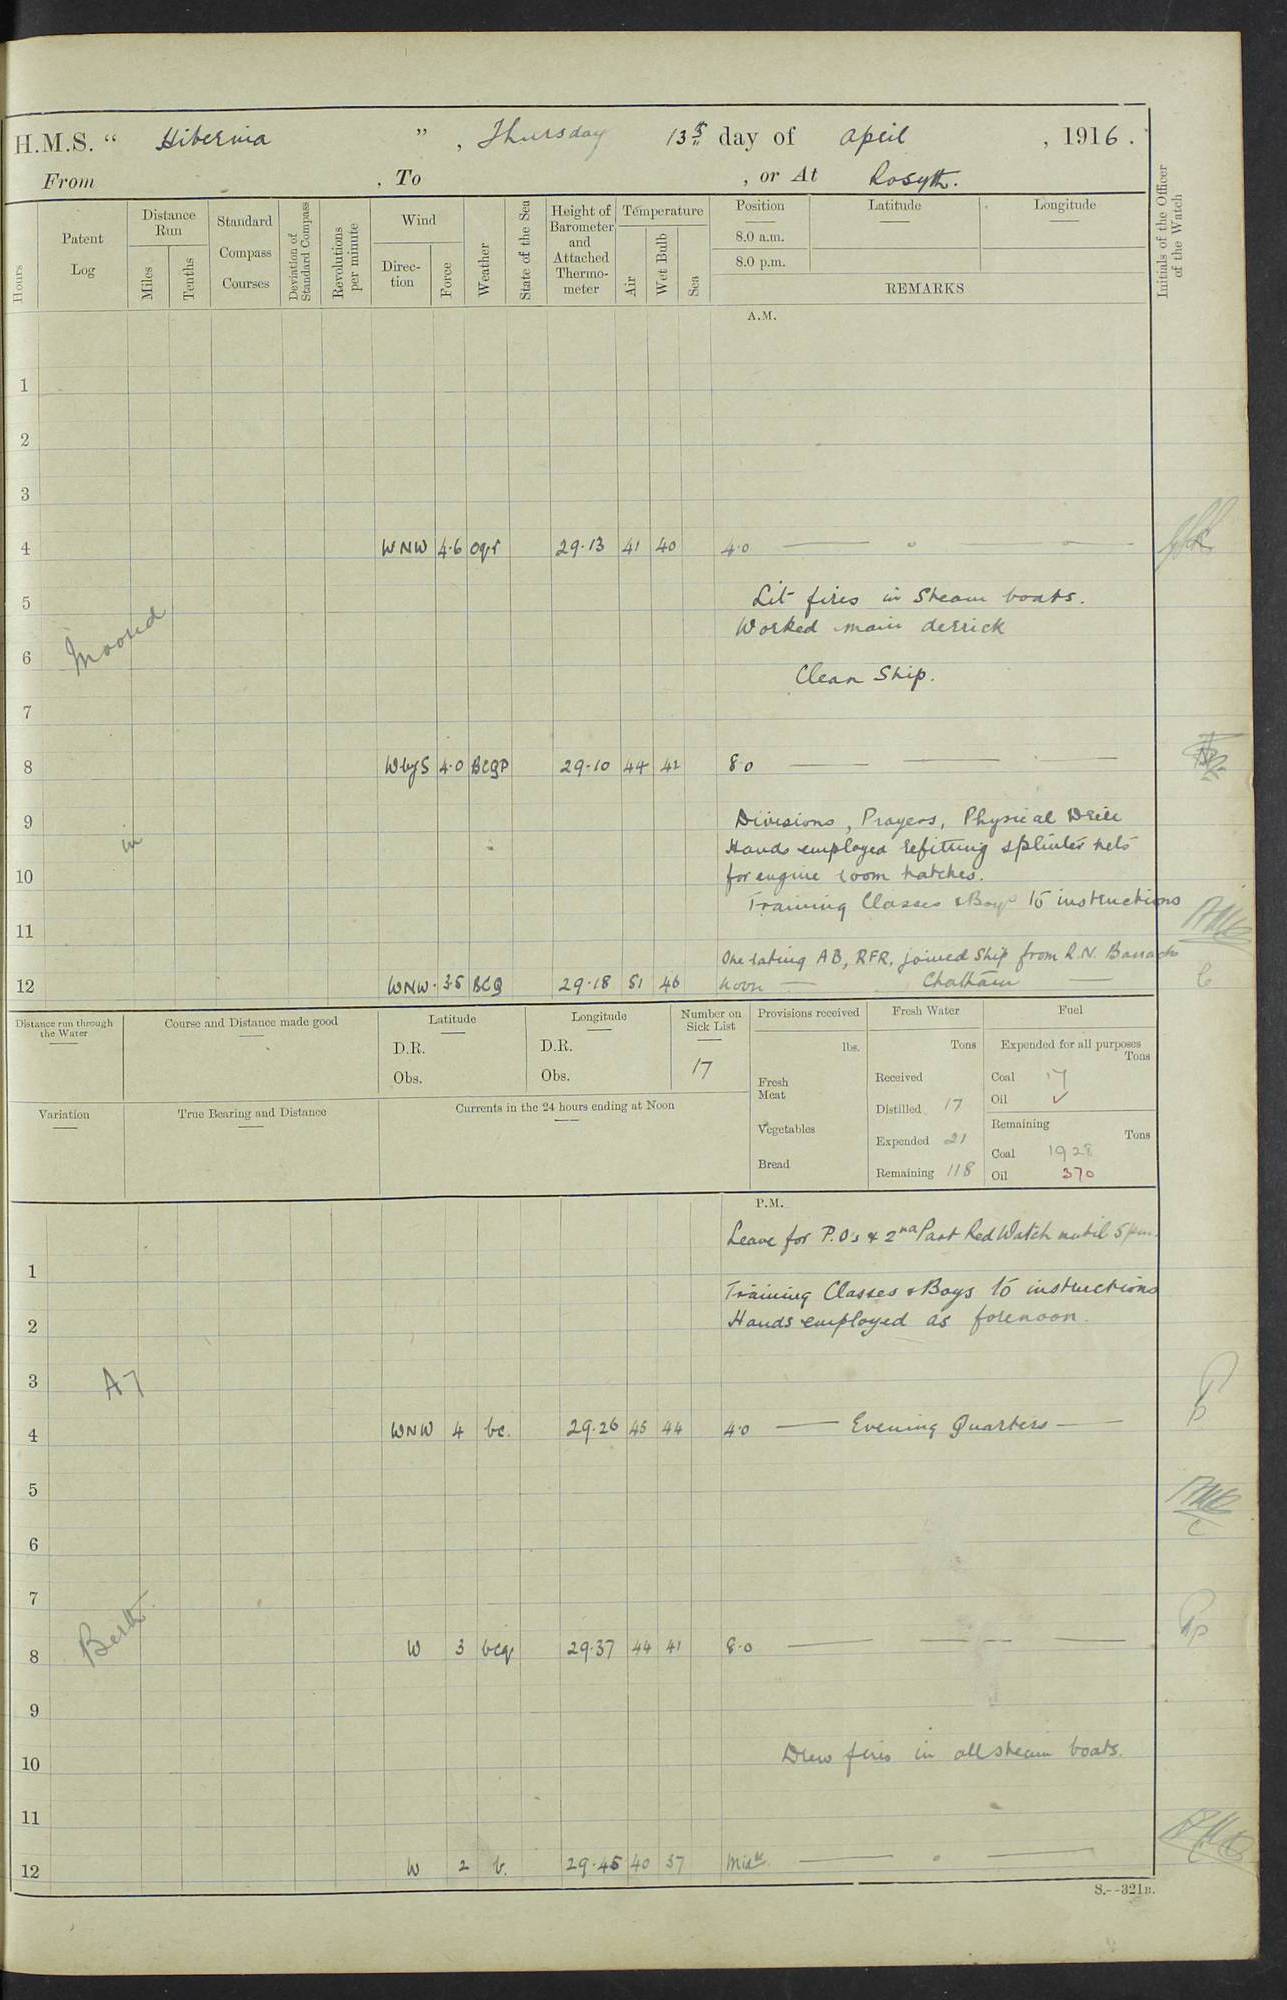 H.M.S. " Hibernia ", Thursday 13th day of April, 1916.
From , To , or At Rosyth.
Hours
Patent Log
Distance Run
Miles
Tenths
Standard Compass Courses
Deviation of Standard Compass
Revolutions per minute
Wind
Direction
Force
Weather
State of the Sea
Height of Barometer and Attached Thermometer
Temperature
Air
Wet Bulb
Sea
Position
8.0 a.m.
8.0 p.m.
Latitude
Longitude
REMARKS
Initials of the Officer of the Watch
A.M.
1
2
3
4 WNW 4.6 oqr 29.13 41 40 4.0
5 Lit fires in Steam boats.
Worked main derrick
Moored
6 Clean Ship.
7
8 WbyS 4.0 BCQP 29.10 44 42 8.0
9 Divisions, Prayers, Physical Drill
in
Hands employed refitting splinter nets
10 for engine room hatches.
Training Classes & Boys to instructions
11
One rating AB, RFR, joined Ship from R.N. Barracks
12 WNW 3.5 BCQ 29.18 51 46 Noon Chatham
Distance run through the Water
Course and Distance made good
Latitude
D.R.
Obs.
Longitude
D.R.
Obs.
Number on Sick List
17
Provisions received
lbs.
Fresh Meat
Vegetables
Bread
Fresh Water
Tons
Received
Distilled 17
Expended 21
Remaining 118
Fuel
Expended for all purposes
Tons
Coal 17
Oil ✓
Remaining
Tons
Coal 1928
Oil 370
Variation
True Bearing and Distance
Currents in the 24 hours ending at Noon
P.M.
Leave for P.O's & 2nd Part Red Watch until 5 pm.
1
Training Classes & Boys to instructions
2 Hands employed as forenoon.
3 A7
4 WNW 4 bc. 29.26 45 44 4.0 Evening Quarters
5
6
7
Berth.
8 W 3 bcq 29.37 44 41 8.0
9
10 Drew fires in all steam boats.
11
12 W 2 b. 29.45 40 37 Midt.
S.--321B.